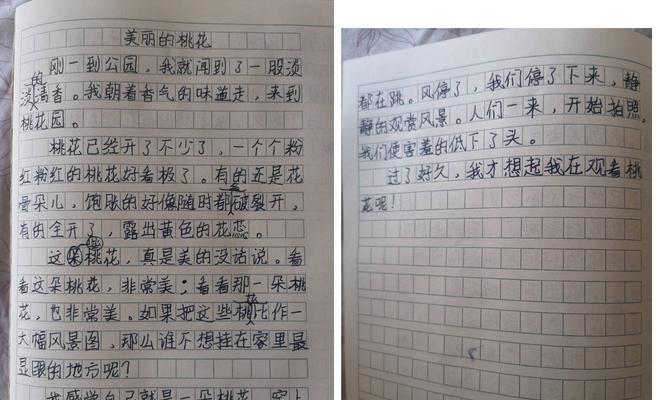 美丽的桃花
刚一到公园，我就闻到了一股淡
淡的清香。我朝着香气的味道走，来到
桃花园。
桃花已经开了不少了，一个个粉
红粉红的桃花好看极了。有的还是花
骨朵儿，饱胀的好像随时都会破裂开，
有的全开了，露出黄色的花蕊。
这朵桃花，真是美的没话说。看
看这朵桃花，非常美；看看那一朵桃
花，也非常美。如果把这些桃花比作一
大幅风景图，那么谁不想挂在家里最
显眼的地方呢？
我感觉自己就是一朵桃花，穿上
都在跳。风停了，我们停了下来，静
静的观赏风景。人们一来，开始拍照。
我们便害羞的低下了头。
过了好久，我才想起我在观看桃
花呢！